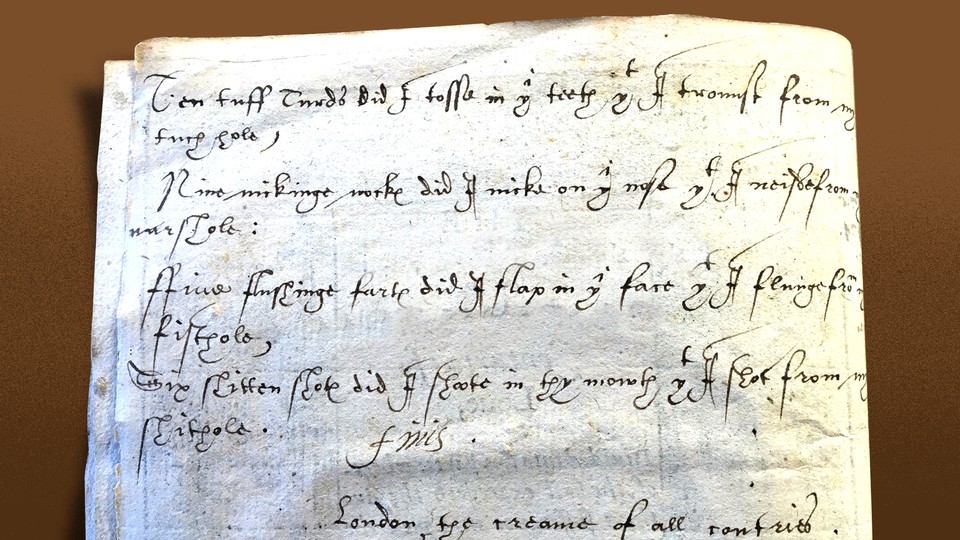 Ten tuff Turds did I tosse in yͬ teeth yͭ I tromist from my
tuch hole,
Nine nickinge nockes did I nicke on yͬ nose yͭ I neisde from
narshole :
ffive flushinge fartes did I flap in yͬ face yͭ I flunge frõ
fisthole,
Six shitten shotes did I shoote in thy mowth yͭ I shot from my
shithole .
finis .
London the creame of all contries .